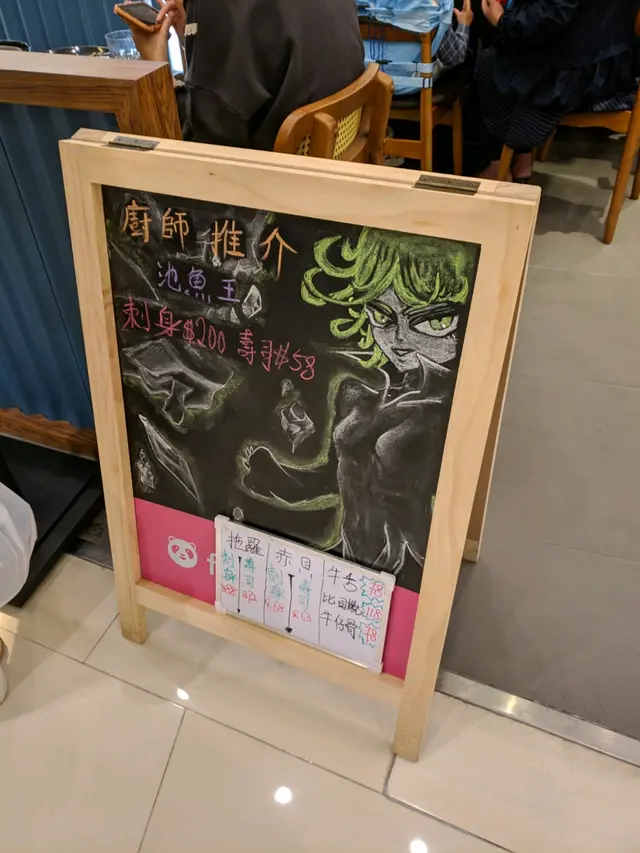 廚師推介
池魚王
刺身$200 壽司$58
拖羅 赤貝 牛舌 78
刺身 壽司 刺身 壽司
比目魚 118
牛仔骨 78
f